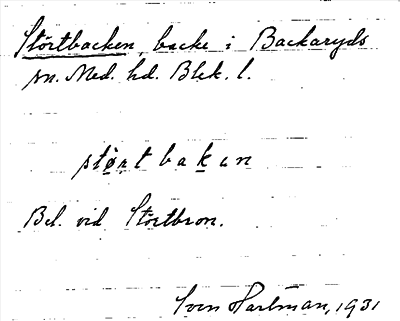 Störtbacken, backe i Backaryds
sn. Med. hd. Blek. l.
størtbakɘn
Bel. vid Störtbron.
Sven Hartman, 1931